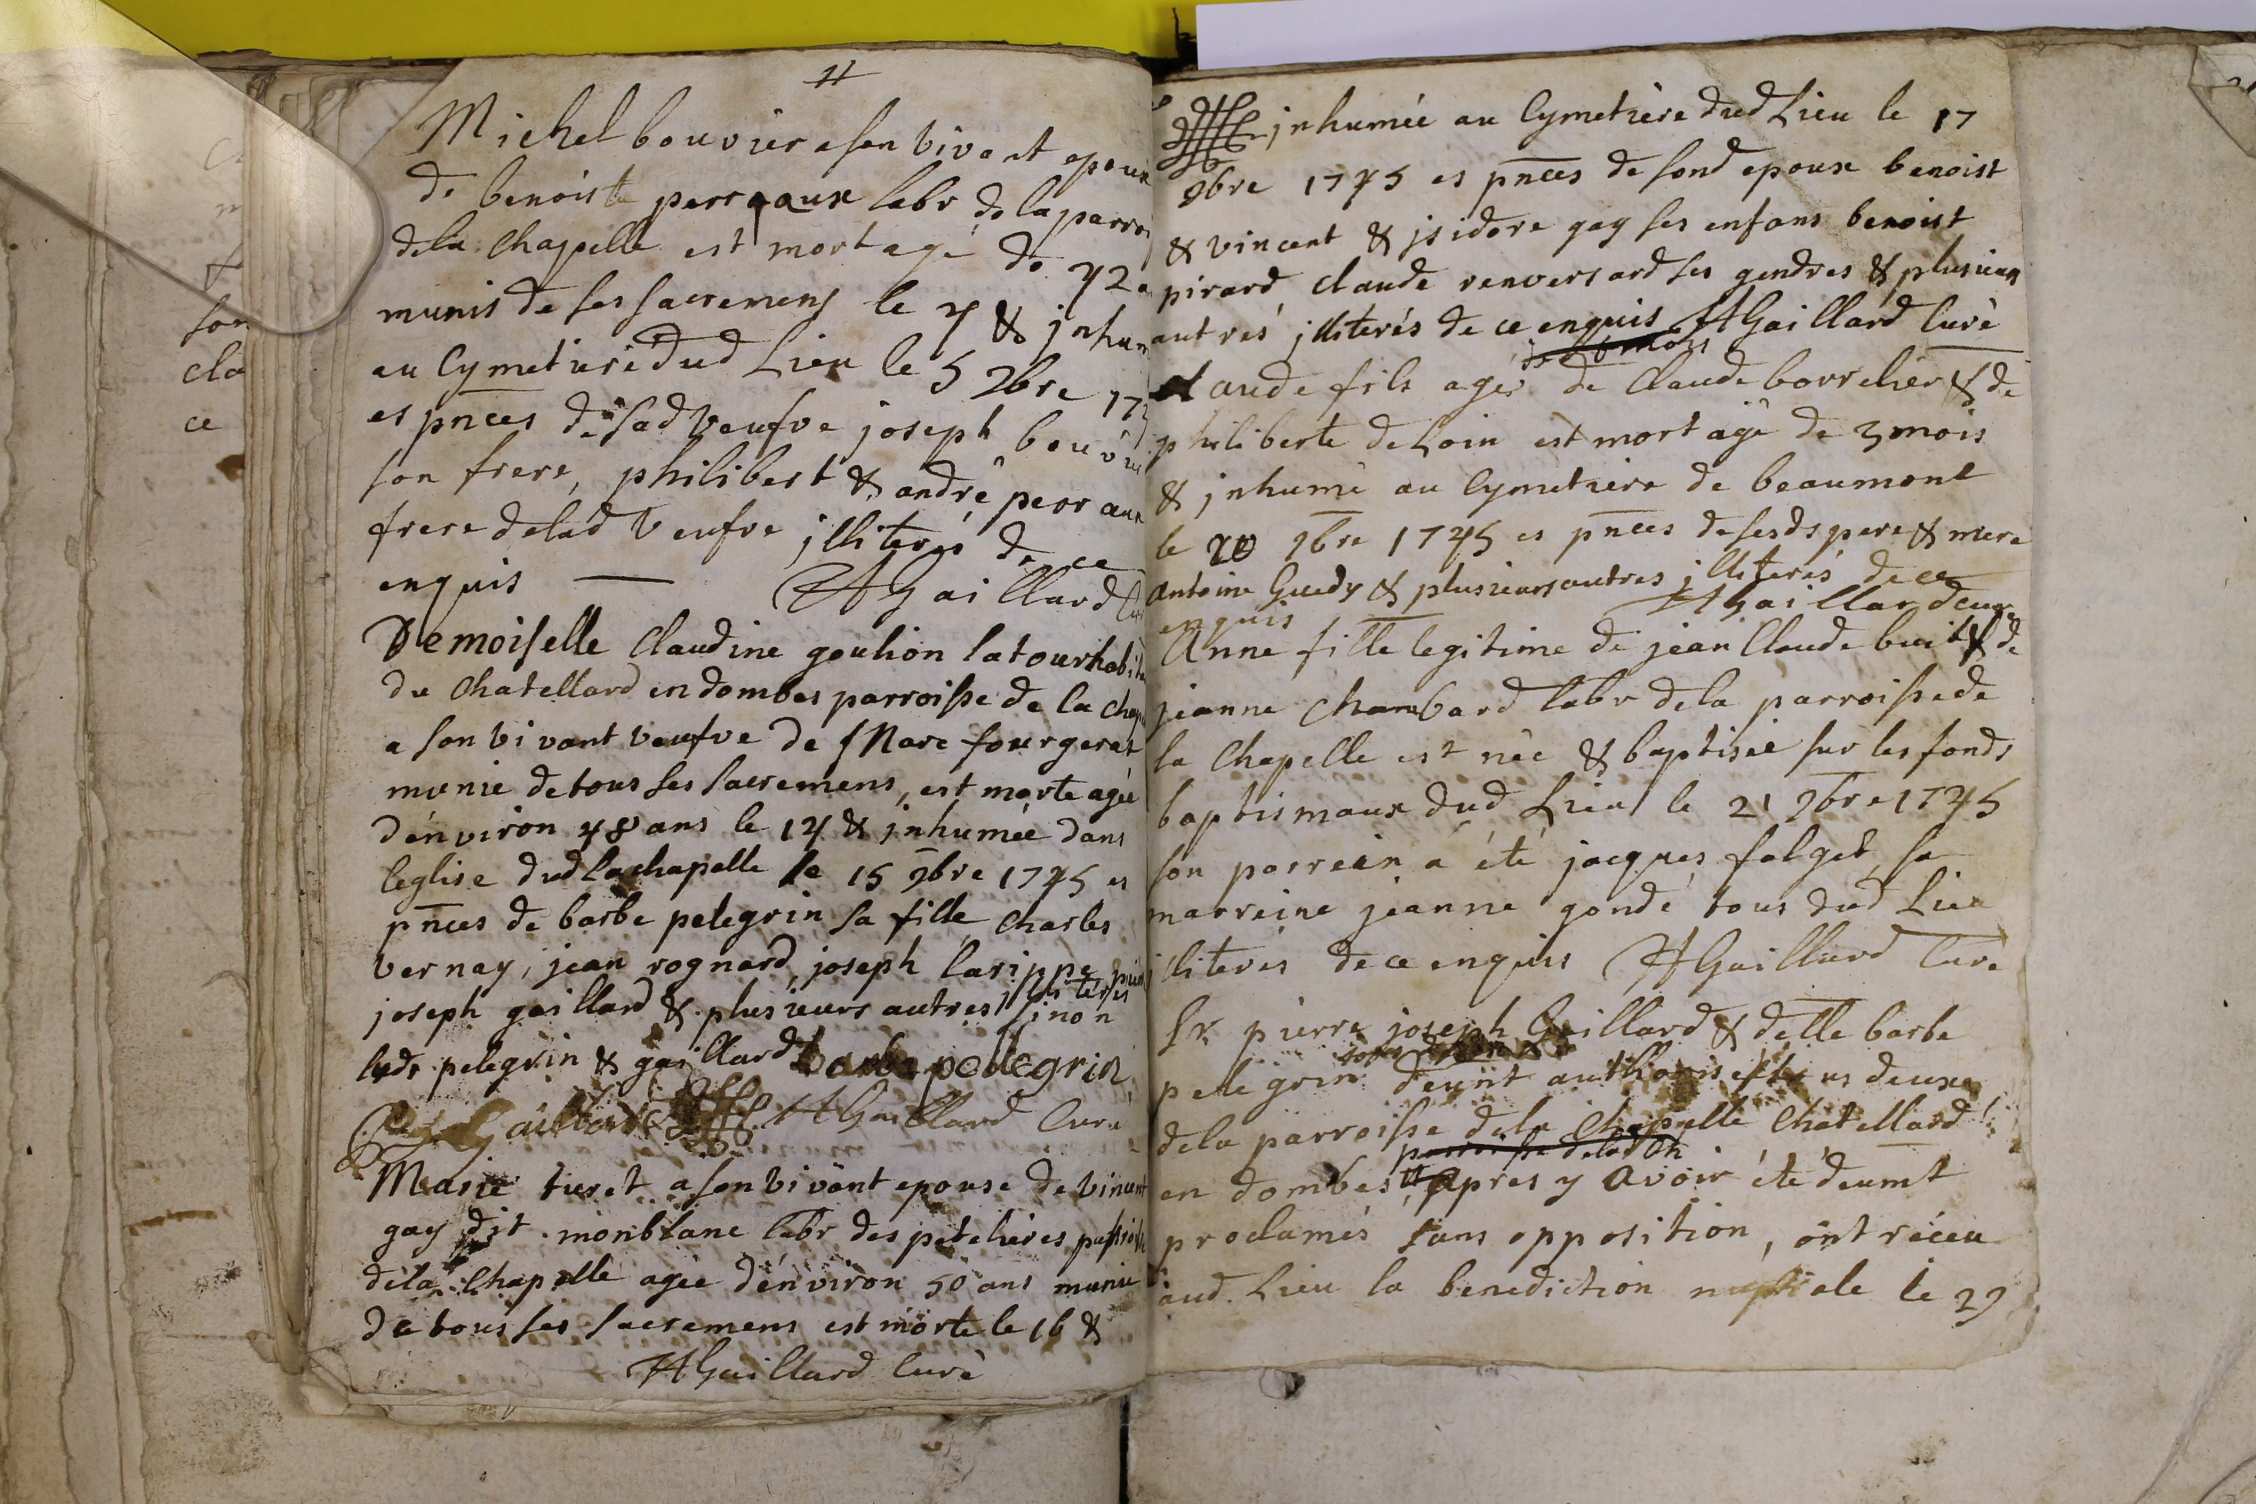 11
Michel bouvier a son vivant epoux
de benoiste perraux labr de la parroi
de la Chapelle est mort agé de 42
munis de ses sacremens le 4 & jnhu
au Cymetiere dud Lieu le 5 9bre 17
es pnces de sad veufve joseph bouvi
son frere, philibert & andrè perraux
frere de lad Veufve jlliterés de ce
enquis AGaillard
Demoiselle Claudine goulion latour habit
du Chatellard en dombes parroisse de la Chap
a son vivant veufve de Marc fourgeret
munie de tous ses sacremens, est morte agée
d'environ 48 ans le 14 & jnhumée dans
leglise dud La chapelle le 15 9bre 1745 es
pnces de barbe pelegrin sa fille Charles
Vernay, jean rognard, joseph larippe pier
joseph gaillard & plusieurs autres jlliterés sinon
lesds pelegrin & gaillard barbe pellegrin
Gaillard AGaillard Curè
Marie turet a son vivant epouse de vincent
gay dit monblanc labr des petelieres parroisse
de la Chapelle agée d'environ 50 ans munie
de tous ses sacremens est morte le 16 &
AGaillard Curè
jnhumée au Cymetière dud Lieu le 17
9bre 1745 es pnces de sond epoux benoist
& vincent & jsidore gay ses enfans benoist
pirard, claude renversard ses gendres & plusieurs
autres jlliterés de ce enquis AGaillard Curè
Claude fils agé de 3 mois de Claude borrelier & de
philiberte deloin est mort agé de 3 mois
& jnhumè au Cymetiere de beaumont
le 20 9bre 1745 es pnces de sesds pere & mere
antoine Guedy & plusieurs autres jlliterés de ce
enquis AGaillard Curè
Anne fille legitime de jean Claude buit & de
jeanne Chambard labr de la parroisse de
la Chapelle est née & baptisée sur les fonds
baptismaux dud Lieu le 21 9bre 1745
son parrein a été jacques falget, sa
marreine jeanne gondé tous dud Lieu
jlliterés de ce enquis AGaillard Curè
Sr pierre joseph Gaillard & delle barbe
pelegrin deunt authorisés tous deux
de la parroisse de la Chapelle Chatellard
parroisse de lad Ch
en dombes apres y avoir été deumt
proclamés sans opposition, ont réceu
aud. Lieu la benediction nuptiale le 29